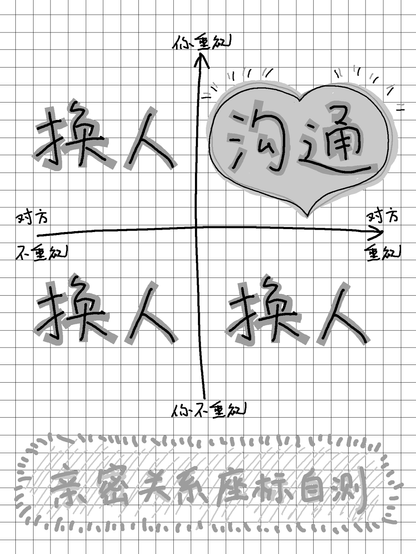 你重视
换人
沟通
对方
不重视
对方
重视
换人
换人
你不重视
亲密关系座标自测